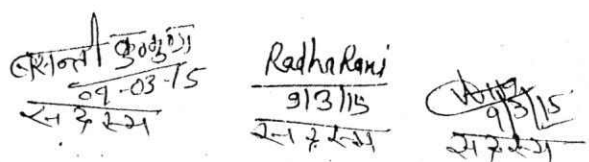 बसन्ती
09-03-15
सदस्य
Radha Rani
9/3/15
सदस्य
9/3/15
सदस्य